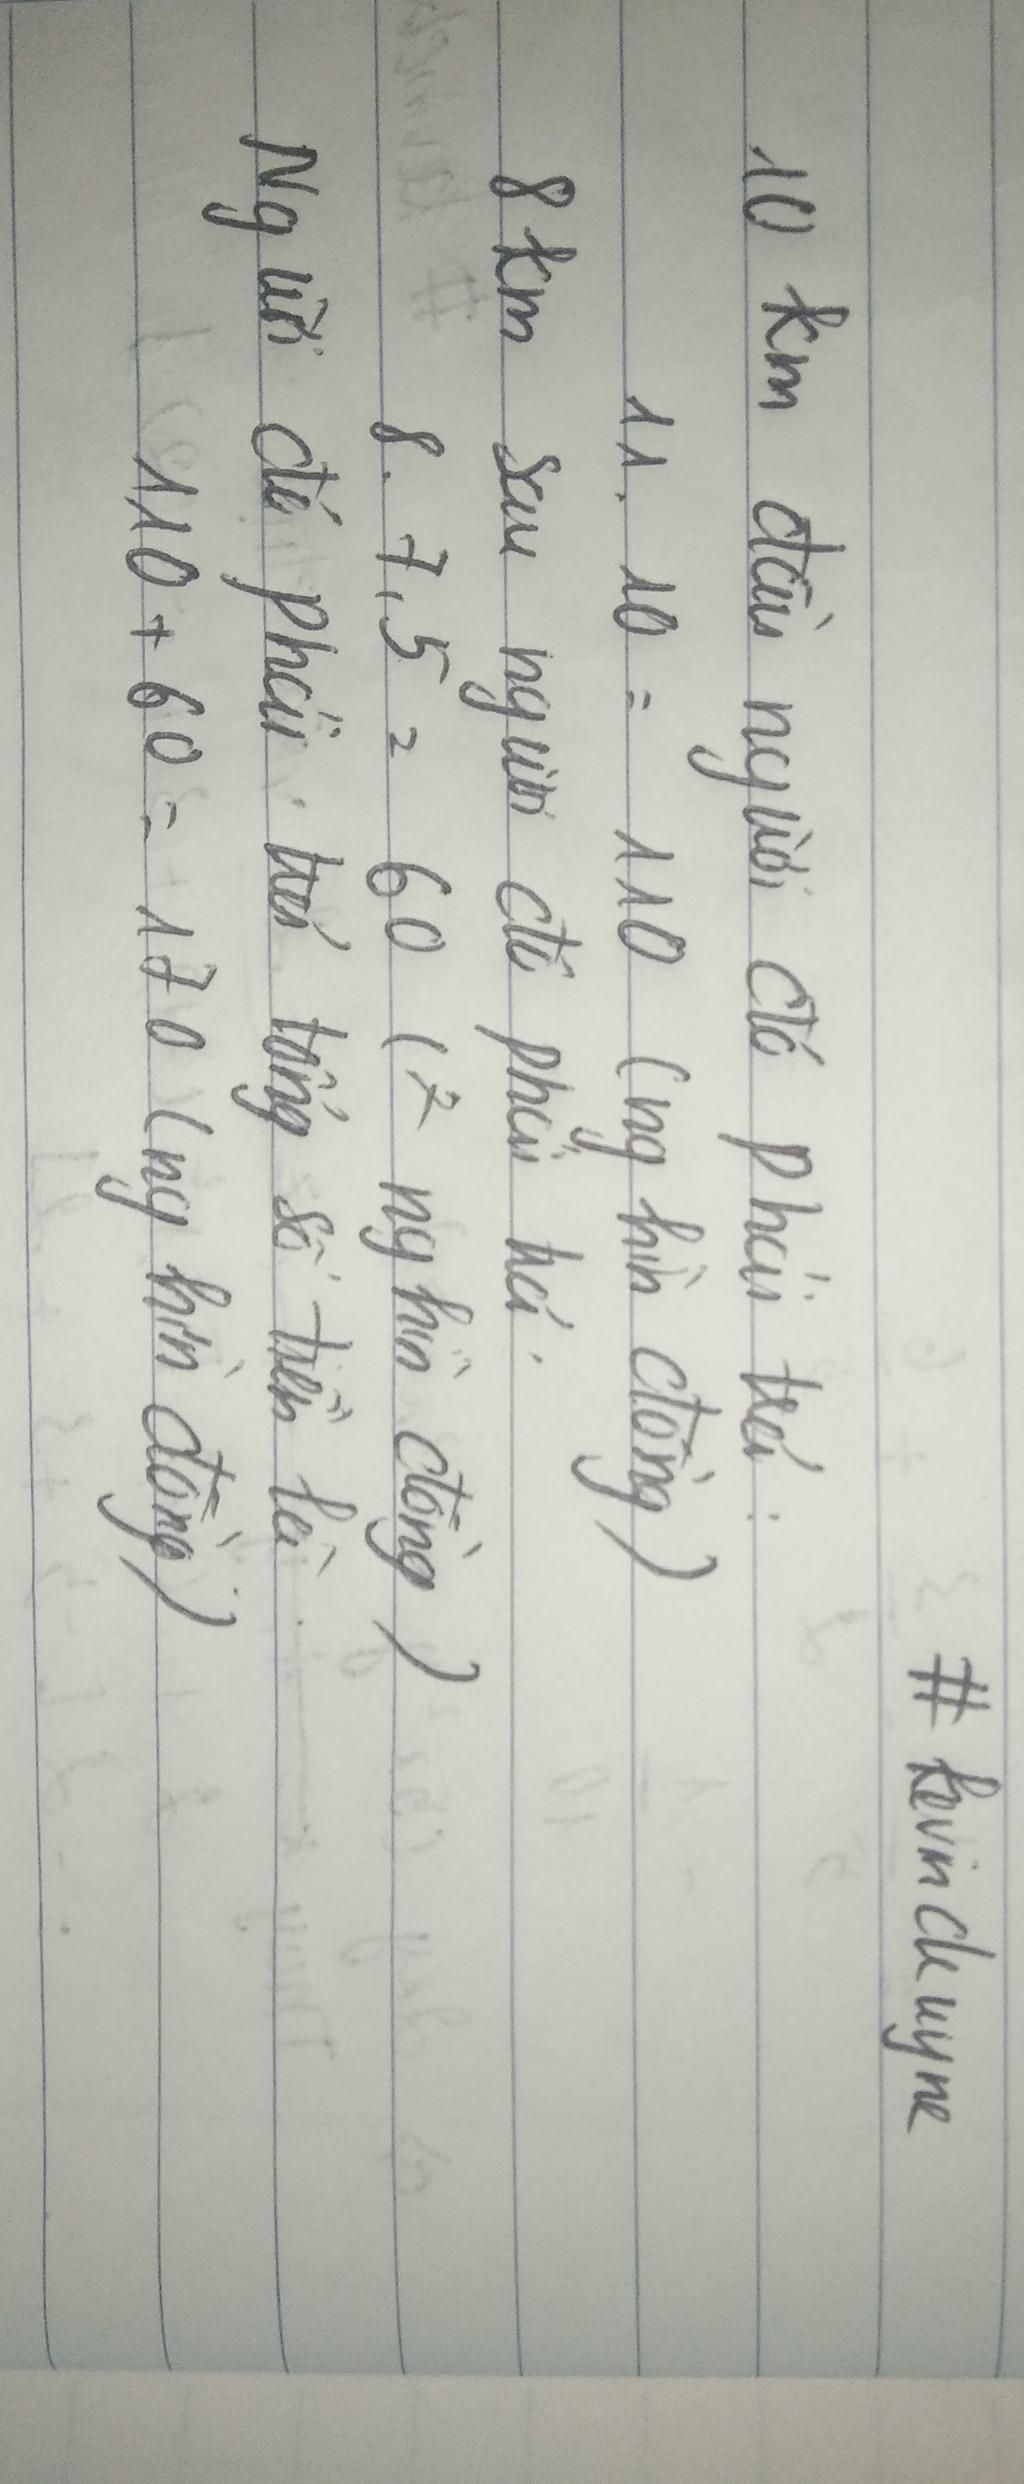 # kevin cluyne
10 km đầu người đó phải trả :
11. 10 = 110 (nghìn đồng)
8 km sau người đó phải trả :
8. 7,5 = 60 ( nghìn đồng)
Người đó phải trả tổng số tiền là
110 + 60 = 170 (nghìn đồng)